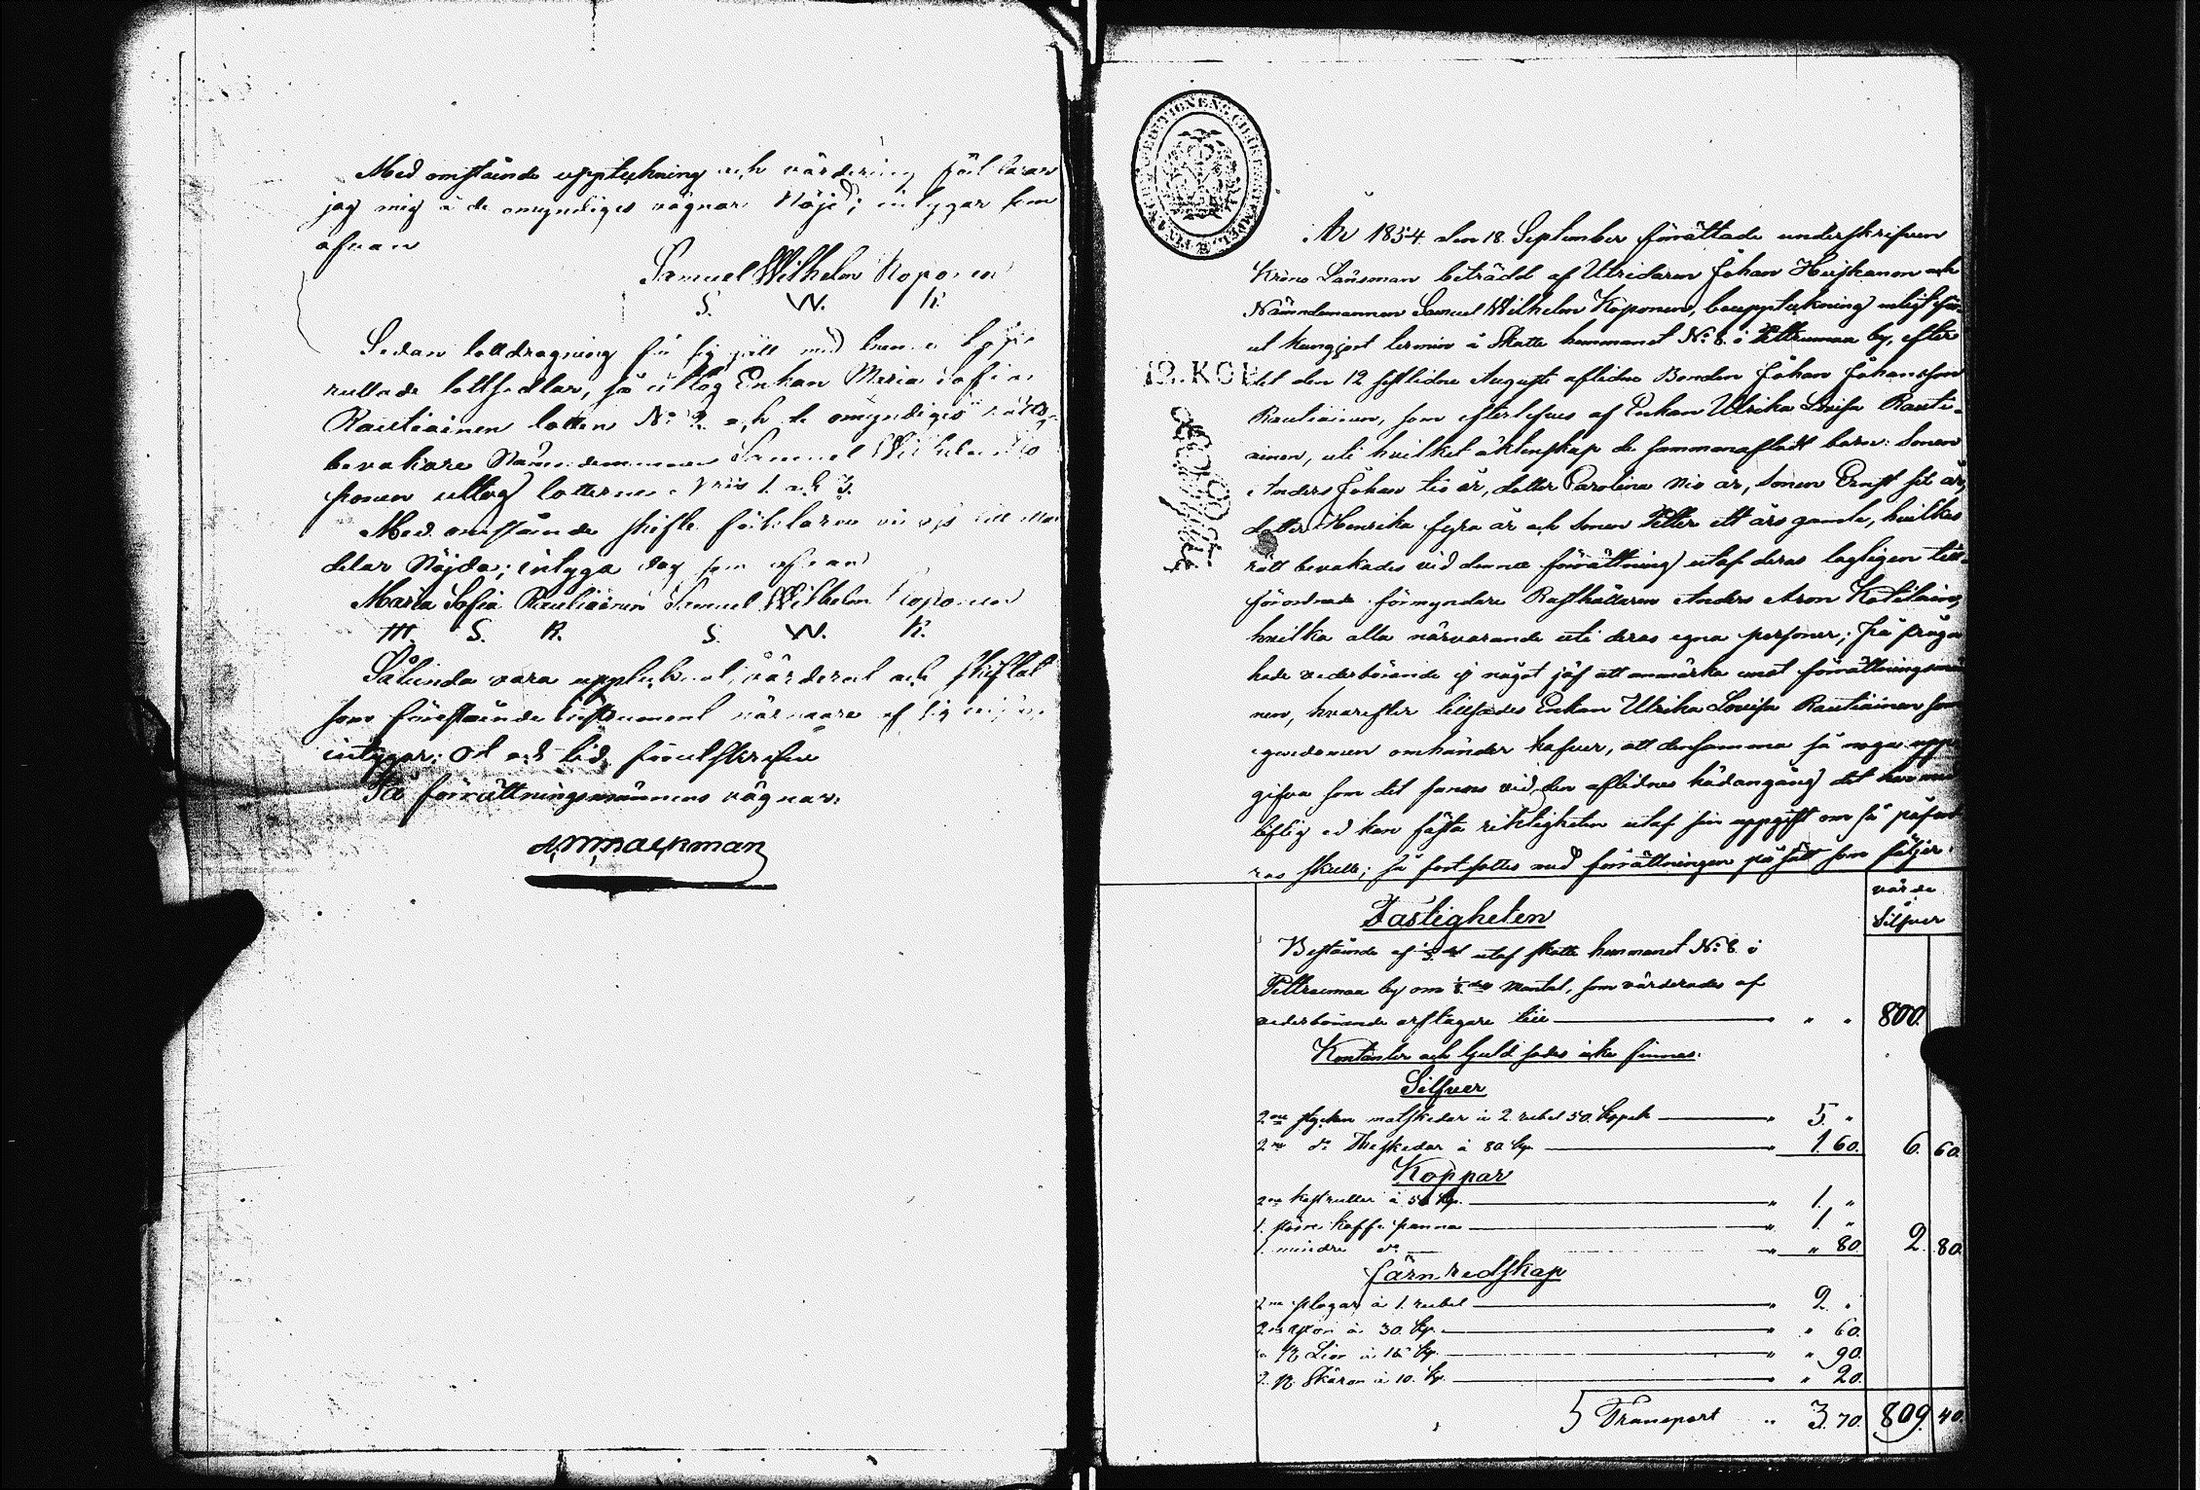 Med omstående uppteckning och värdering förklarar
jag mig å de omyndiges vägnar Nöjd; intygar som
ofvan
Samuel Wilhelm Koponen
S. W. K.
Sedan lottdragning för sig gått med
rullade lottsedlar, så uttog Enkan Maria Sofia
Rautiainen lotten No 2 och de omyndiges rätts
bevakare Nämndemannen Samuel Wilhelm Ko
ponen uttog lotterne No 1 och 3.
Med omstående skifte förklara vi oss till alla
delar Nöjda; intyga dag som ofvan
Maria Sofia Rautiainen Samuel Wilhelm Koponen
M. S. R. S. W. K.
Sålunda vara upptecknat, värderat och skiftat
som förestående instrument närmare af sig
intygar; Ort och tid förutskrifne
På förrättningsmännens vägnar:
FINANCE EXPEDITIONENS
År 1854 den 18 September förrättade underskrifven
Krono Länsman beträdd af Utridaren Johan Heiskanen och
Nämndemannen Samuel Wilhelm Koponen, bouppteckning enligt för
ut kungjort termin å Skatte hemmanet No 8 i Pettrumaa by, efter
12. KOP
det den 12 sistlidne Augusti aflidne Bonden Johan Johansson
Rautiainen, som efterlefves af Enkan Ulrika Lovisa Rauti-
ainen, uti hvilket äktenskap de sammanaflat barn: Sonen
Anders Johan tio år, dotter Carolina nio år, Sonen Ernst år,
dotter Henrika fyra år och Sonen Petter ett års gamla, hvilkas
rätt bevakades vid denna förrättning utaf deras lagligen till-
förordnade förmyndare Rusthållaren Anders Aron Kotilain,
hvilka alla närvarande uti deras egna personer; På fråga
hade vederbörande ej något jäf att anmärka emot förrättningsmän
nen, hvarefter tillsades Enkan Ulrika Lovisa Rautiainen som
egendomen omhänder hafver, att densamma så noga upp
gifva som det fanns vid den aflidnes hädangång det hon med
liflig ed kan fästa riktigheten utaf sin uppgift om så påford
ras skulle; så fortsattes med förrättningen på sätt som följer:
värde
Silfver
Fastigheten
Bestående af utaf skatte hemmanet No 8 i
Pettrumaa by om mantal, som värderades af
vederbörande arftagare till " " 800.
Kontanter och Guld sades icke finnas.
Silfver
2ne stycken matskedar à 2 rubel 50 kopek " 5. "
2ne do Theskedar à 80 kp. " 1. 60. 6. 60.
Koppar
2ne kastruller à 50 kp. " 1. "
1. större kaffe panna " 1. "
1. mindre do " " 80. 2. 80.
Järn redskap
2ne plogar à 1. rubel " 2. "
2ne à 30. kp. " " 60.
Lior à 15 kp. " " 90.
2. Skäror à 10. kp. " " 20.
Transport " 3. 70. 809. 40.